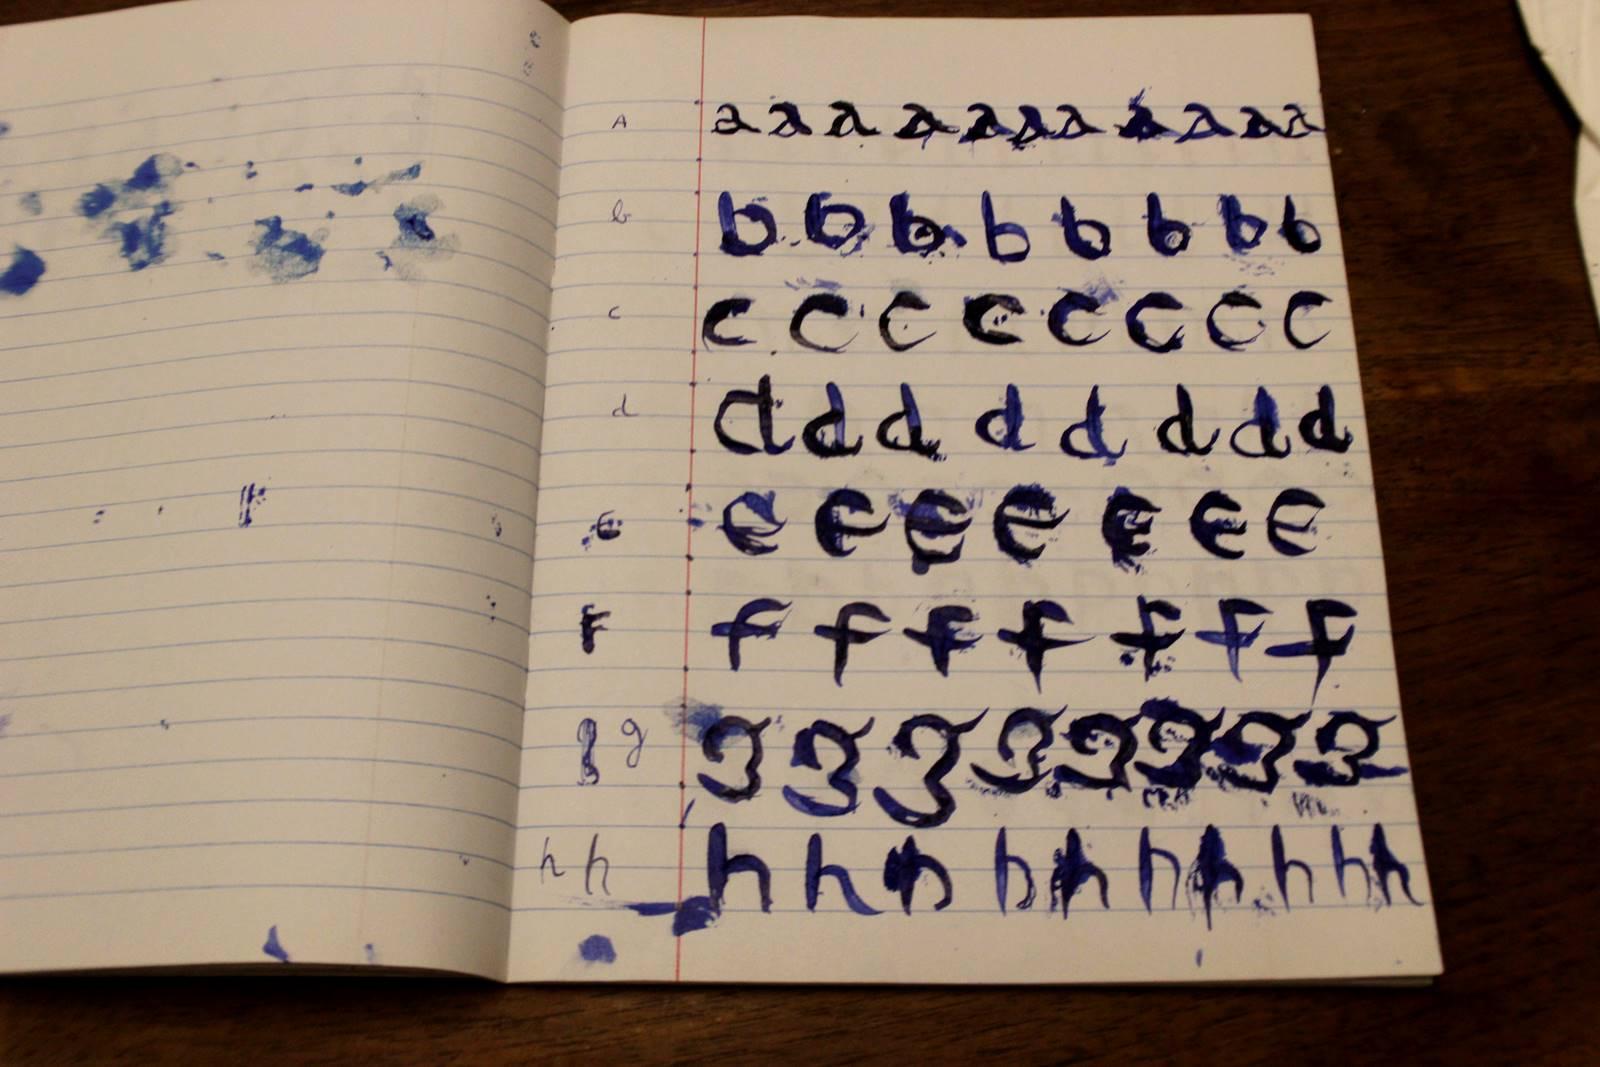 A a a a a a a a a a a a
b b b b b b b b b
c c c c c c c c c
d d d d d d d d d
e e e e e e e e
F f f f f f f f
g g g g g g g g g
h h h h h h h h h h h h